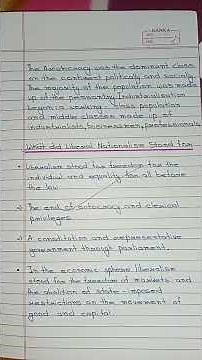 The Aristocracy was the dominant class
on the continent politicaly and socially.
The majority of the population was made
up of the peasantry. Industrialisation
began a working class population
and middle classes made up of
industrialists, businessmen, professionals
What did Liberal Nationalism Stand for
Liberalism stood for freedom for the
individual and equality for all before
the law.
The end of autocracy and clerical
privileges
A constitution and representative
government through parliament.
In the economic sphere liberalism
stood for the freedom of markets and
the abolition of state-
restrictions on the movement of
good and capital.